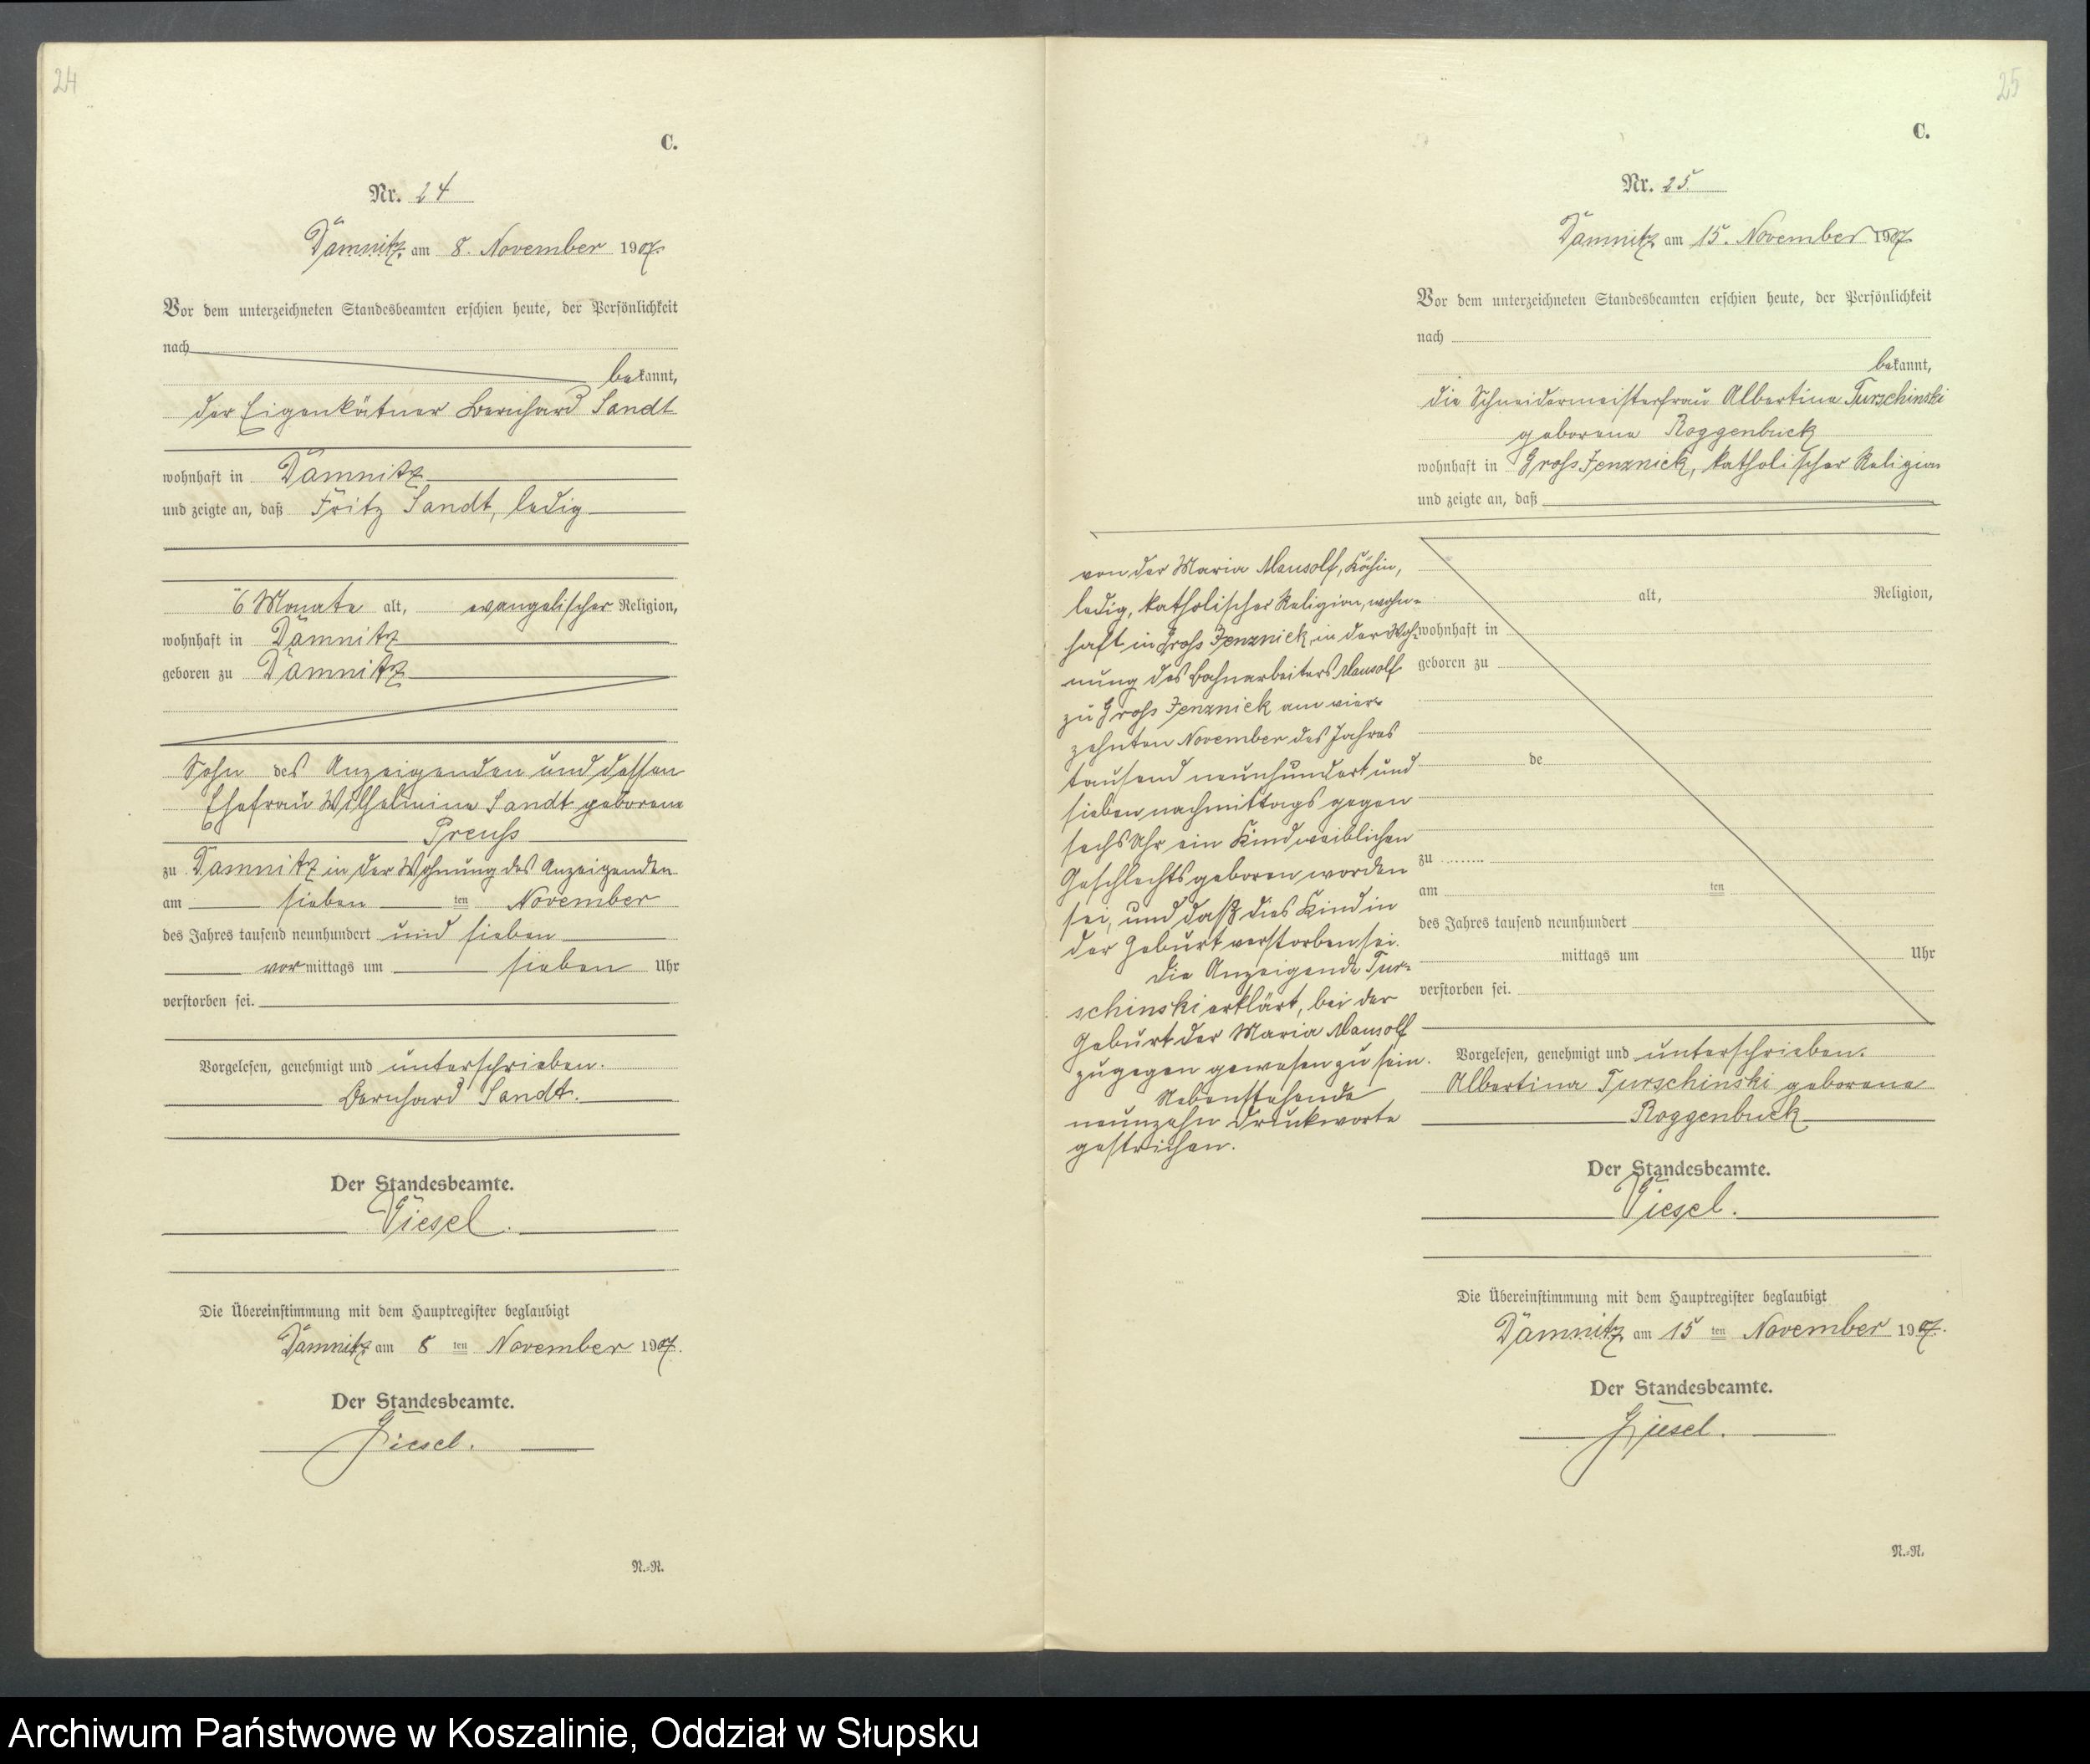 24
C.
Nr. 24
Dämnitz am 8. November 1907.
Vor dem unterzeichneten Standesbeamten erschien heute, der Persönlichkeit
nach
bekannt,
der Eigenkätner Bernhard Sandt
wohnhaft in Dämnitz
und zeigte an, daß Fritz Sandt, ledig
6 Monate alt, evangelischer Religion,
wohnhaft in Dämnitz
geboren zu Dämnitz
Sohn des Anzeigenden und dessen
Ehefrau Wilhelmine Sandt geborene
Preuß
zu Dämnitz in der Wohnung des Anzeigenden
am sieben ten November
des Jahres tausend neunhundert und sieben
vormittags um sieben Uhr
verstorben sei.
Vorgelesen, genehmigt und unterschrieben.
Bernhard Sandt.
Der Standesbeamte.
Giesel.
Die Übereinstimmung mit dem Hauptregister beglaubigt
Dämnitz am 8 ten November 1907.
Der Standesbeamte.
Giesel.
N.-R.
25
C.
Nr. 25.
Dämnitz am 15. November 1907.
Vor dem unterzeichneten Standesbeamten erschien heute, der Persönlichkeit
nach
bekannt,
die Schneidermeisterfrau Albertine Turschinski
geborene Roggenbuck
wohnhaft in Groß Jenznick, katholischer Religion
und zeigte an, daß
von der Maria Mausolf, Köchin,
ledig, katholischer Religion, wohn-
haft in Groß Jenznick, in der Woh-
nung des Bahnarbeiters Mausolf
zu Groß Jenznick am vier-
zehnten November des Jahres
tausend neunhundert und
sieben nachmittags gegen
sechs Uhr ein Kind weiblichen
Geschlechts geboren worden
sei, und daß dies Kind in
der Geburt verstorben sei.
Die Anzeigende Tur-
schinski erklärt, bei der
Geburt der Maria Mausolf
zugegen gewesen zu sein.
Nebenstehende
neunzehn Druckworte
gestrichen.
alt, Religion,
wohnhaft in
geboren zu
de
zu
am ten
des Jahres tausend neunhundert
mittags um Uhr
verstorben sei.
Vorgelesen, genehmigt und unterschrieben.
Albertine Turschinski geborene
Roggenbuck
Der Standesbeamte.
Giesel.
Die Übereinstimmung mit dem Hauptregister beglaubigt
Dämnitz am 15 ten November 1907.
Der Standesbeamte.
Giesel.
N.-R.
Archiwum Państwowe w Koszalinie, Oddział w Słupsku